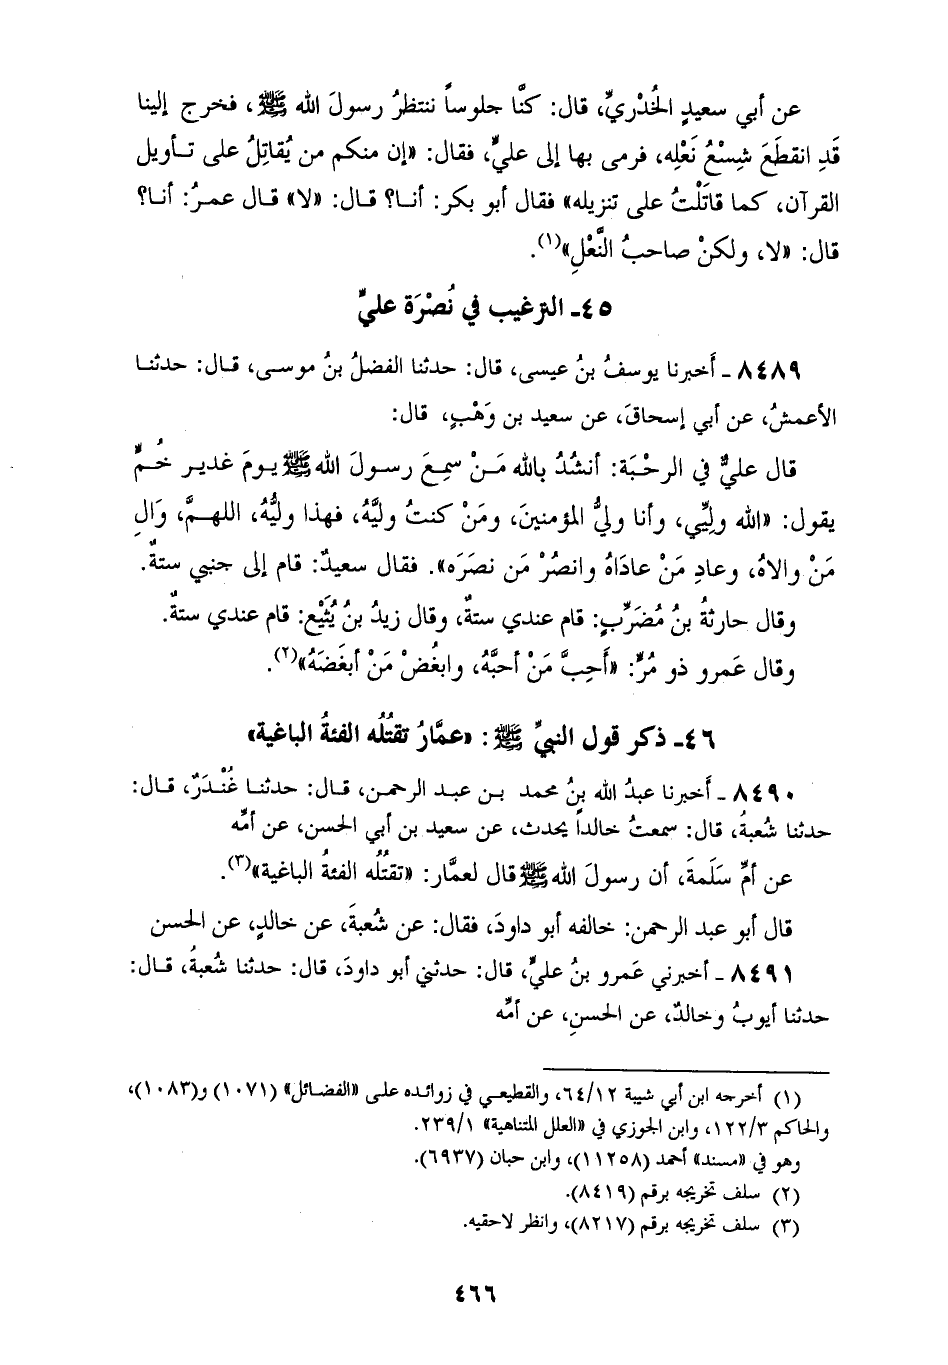 عن أبي سعيدٍ الخُدْريِّ، قال: كنَّا جلوساً ننتظرُ رسولَ الله ﷺ، فخرج إلينا
قَدِ انقطَعَ شِسْعُ نَعْلِه، فرمى بها إلى عليٍّ، فقال: «إن منكم من يُقاتِلُ على تأويل
القرآن، كما قاتَلْتُ على تنزيله» فقال أبو بكر: أنا؟ قال: «لا» قال عمرُ: أنا؟
قال: «لا، ولكنْ صاحبُ النَّعْلِ»(١).
٤٥ـ الترغيب في نُصْرَة عليٍّ
٨٤٨٩ ـ أخبرنا يوسفُ بنُ عيسى، قال: حدثنا الفضلُ بنُ موسى، قال: حدثنا
الأعمشُ، عن أبي إسحاقَ، عن سعيد بن وَهْبٍ، قال:
قال عليٌّ في الرحْبَة: أنشُدُ بالله مَنْ سمِعَ رسولَ الله ﷺ يومَ غدير خُمٍّ
يقول: «الله ولِيِّي، وأنا وليُّ المؤمنين، ومَنْ كنتُ وليَّهُ، فهذا وليُّهُ، اللهمَّ، وَالِ
مَنْ والاهُ، وعادِ مَنْ عادَاهُ وانصُرْ مَن نصَرَه». فقال سعيدٌ: قام إلى جنبي ستةٌ.
وقال حارثةُ بنُ مُضَرِّبٍ: قام عندي ستةٌ، وقال زيدُ بنُ يُثَيْع: قام عندي ستةٌ.
وقال عَمرو ذو مُرٍّ: «أَحِبَّ مَنْ أحبَّهُ، وابغُضْ مَنْ أبغَضَهُ»(٢).
٤٦ـ ذكر قول النبيِّ ﷺ: «عمَّارُ تقتُلُه الفئةُ الباغية»
٨٤٩٠ ـ أخبرنا عبدُ الله بنُ محمد بن عبد الرحمن، قال: حدثنا غُنْدَرٌ، قال:
حدثنا شُعبةُ، قال: سمعتُ خالداً يحدث، عن سعيد بن أبي الحسن، عن أمِّه
عن أمِّ سَلَمةَ، أن رسولَ الله ﷺ قال لعمَّار: «تقتُلُه الفئةُ الباغية»(٣).
قال أبو عبد الرحمن: خالفه أبو داودَ، فقال: عن شُعبةَ، عن خالدٍ، عن الحسن
٨٤٩١ ـ أخبرني عَمرو بنُ عليٍّ، قال: حدثني أبو داودَ، قال: حدثنا شُعبةُ، قال:
حدثنا أيوبُ وخالدٌ، عن الحسنِ، عن أمِّه
(١) أخرجه ابن أبي شيبة ٦٤/١٢، والقطيعي في زوائده على «الفضائل» (١٠٧١) و(١٠٨٣)،
والحاكم ١٢٢/٣، وابن الجوزي في «العلل المتناهية» ٢٣٩/١.
وهو في «مسند» أحمد (١١٢٥٨)، وابن حبان (٦٩٣٧).
(٢) سلف تخريجه برقم (٨٤١٩).
(٣) سلف تخريجه برقم (٨٢١٧)، وانظر لاحقيه.
٤٦٦